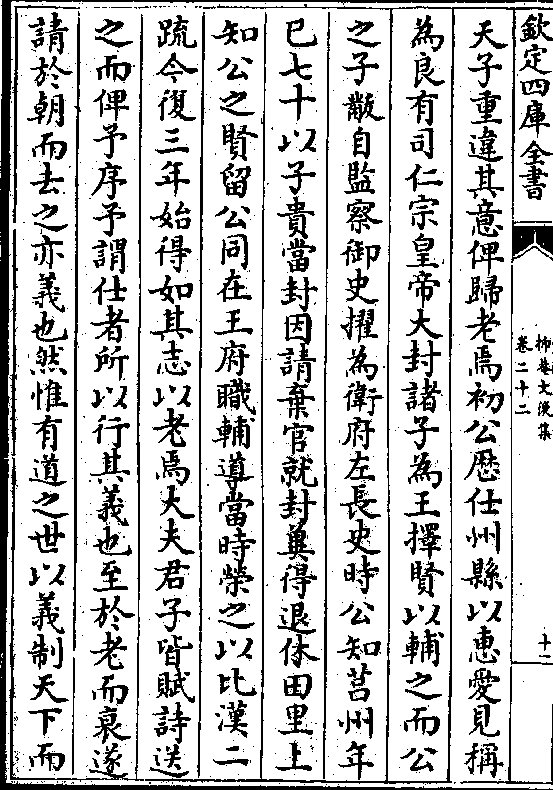 欽定四庫全書
抑菴文後集
卷二十二
十一
天子重違其意俾歸老焉初公歴仕州縣以惠愛見稱
為良有司仁宗皇帝大封諸子為王擇賢以輔之而公
之子黻自監察御史擢為衛府左長史時公知莒州年
已七十以子貴當封因請棄官就封冀得退休田里上
知公之賢留公同在王府職輔導當時榮之以比漢二
疏今復三年始得如其志以老焉大夫君子皆賦詩送
之而俾予序予謂仕者所以行其義也至於老而衰遂
請於朝而去之亦義也然惟有道之世以義制天下而